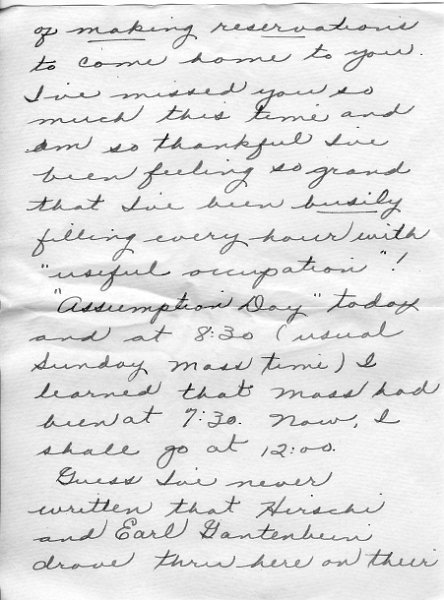 of making reservations
to come home to you.
I've missed you so
much this time and
am so thankful I've
been feeling so grand
that I've been busily
filling every hour with
"useful occupation"!
"Assumption Day" today
and at 8:30 (usual
Sunday Mass time) I
learned that Mass had
been at 7:30. Now, I
shall go at 12:00.
Guess I've never
written that Hirschi
and Earl Gantenbein
drove thru here on their